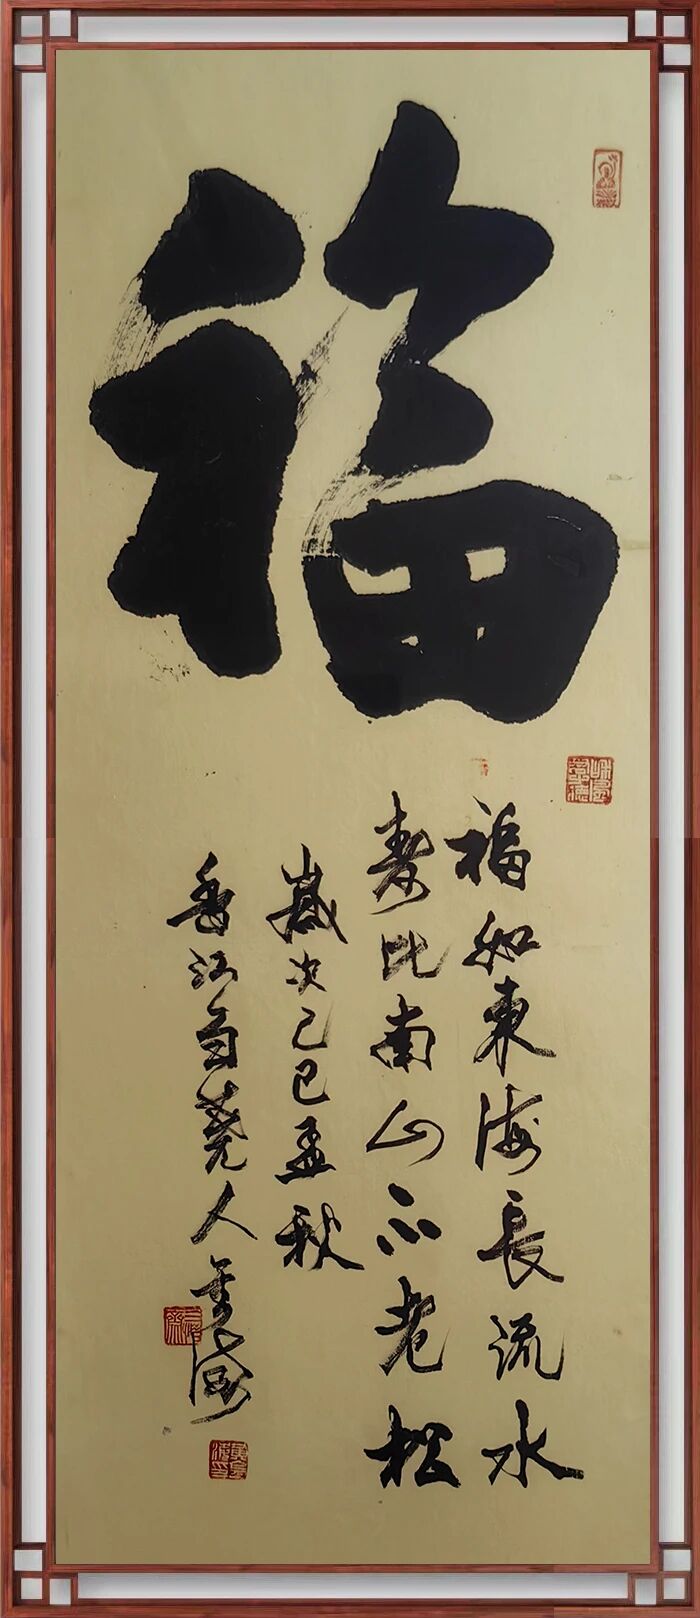 福
福如東海長流水
壽比南山不老松
歲次己巳孟秋
香江蕘人